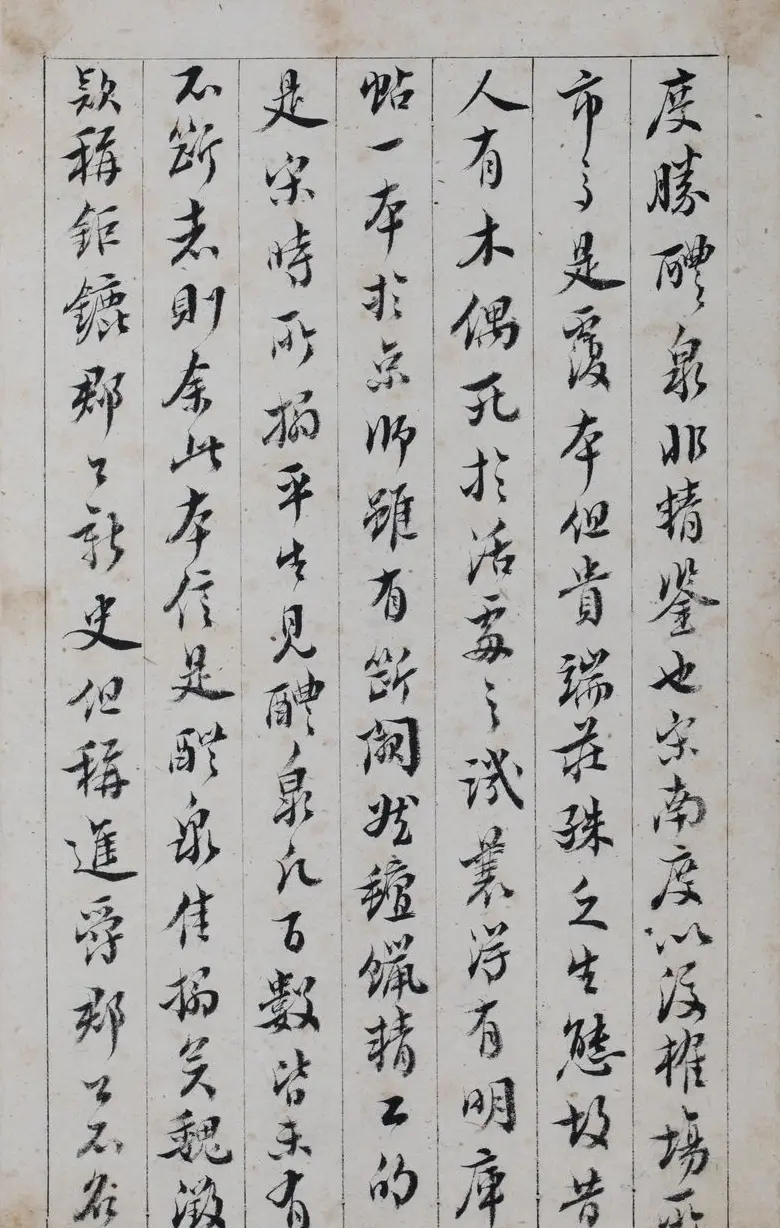 度勝醴泉非精鑒也宋南度以後榷場所
市多是覆本但貴端莊殊乏生態故昔
人有木偶死於活處之譏曩得有明庫
帖一本於京師雖有斷闕然氊蠟精工的
是宋時所搨平生見醴泉凡百數皆未有
不斷者則余此本信是醴泉佳搨矣魏徵
款稱鉅鏕郡公新史但稱進爵郡公不名